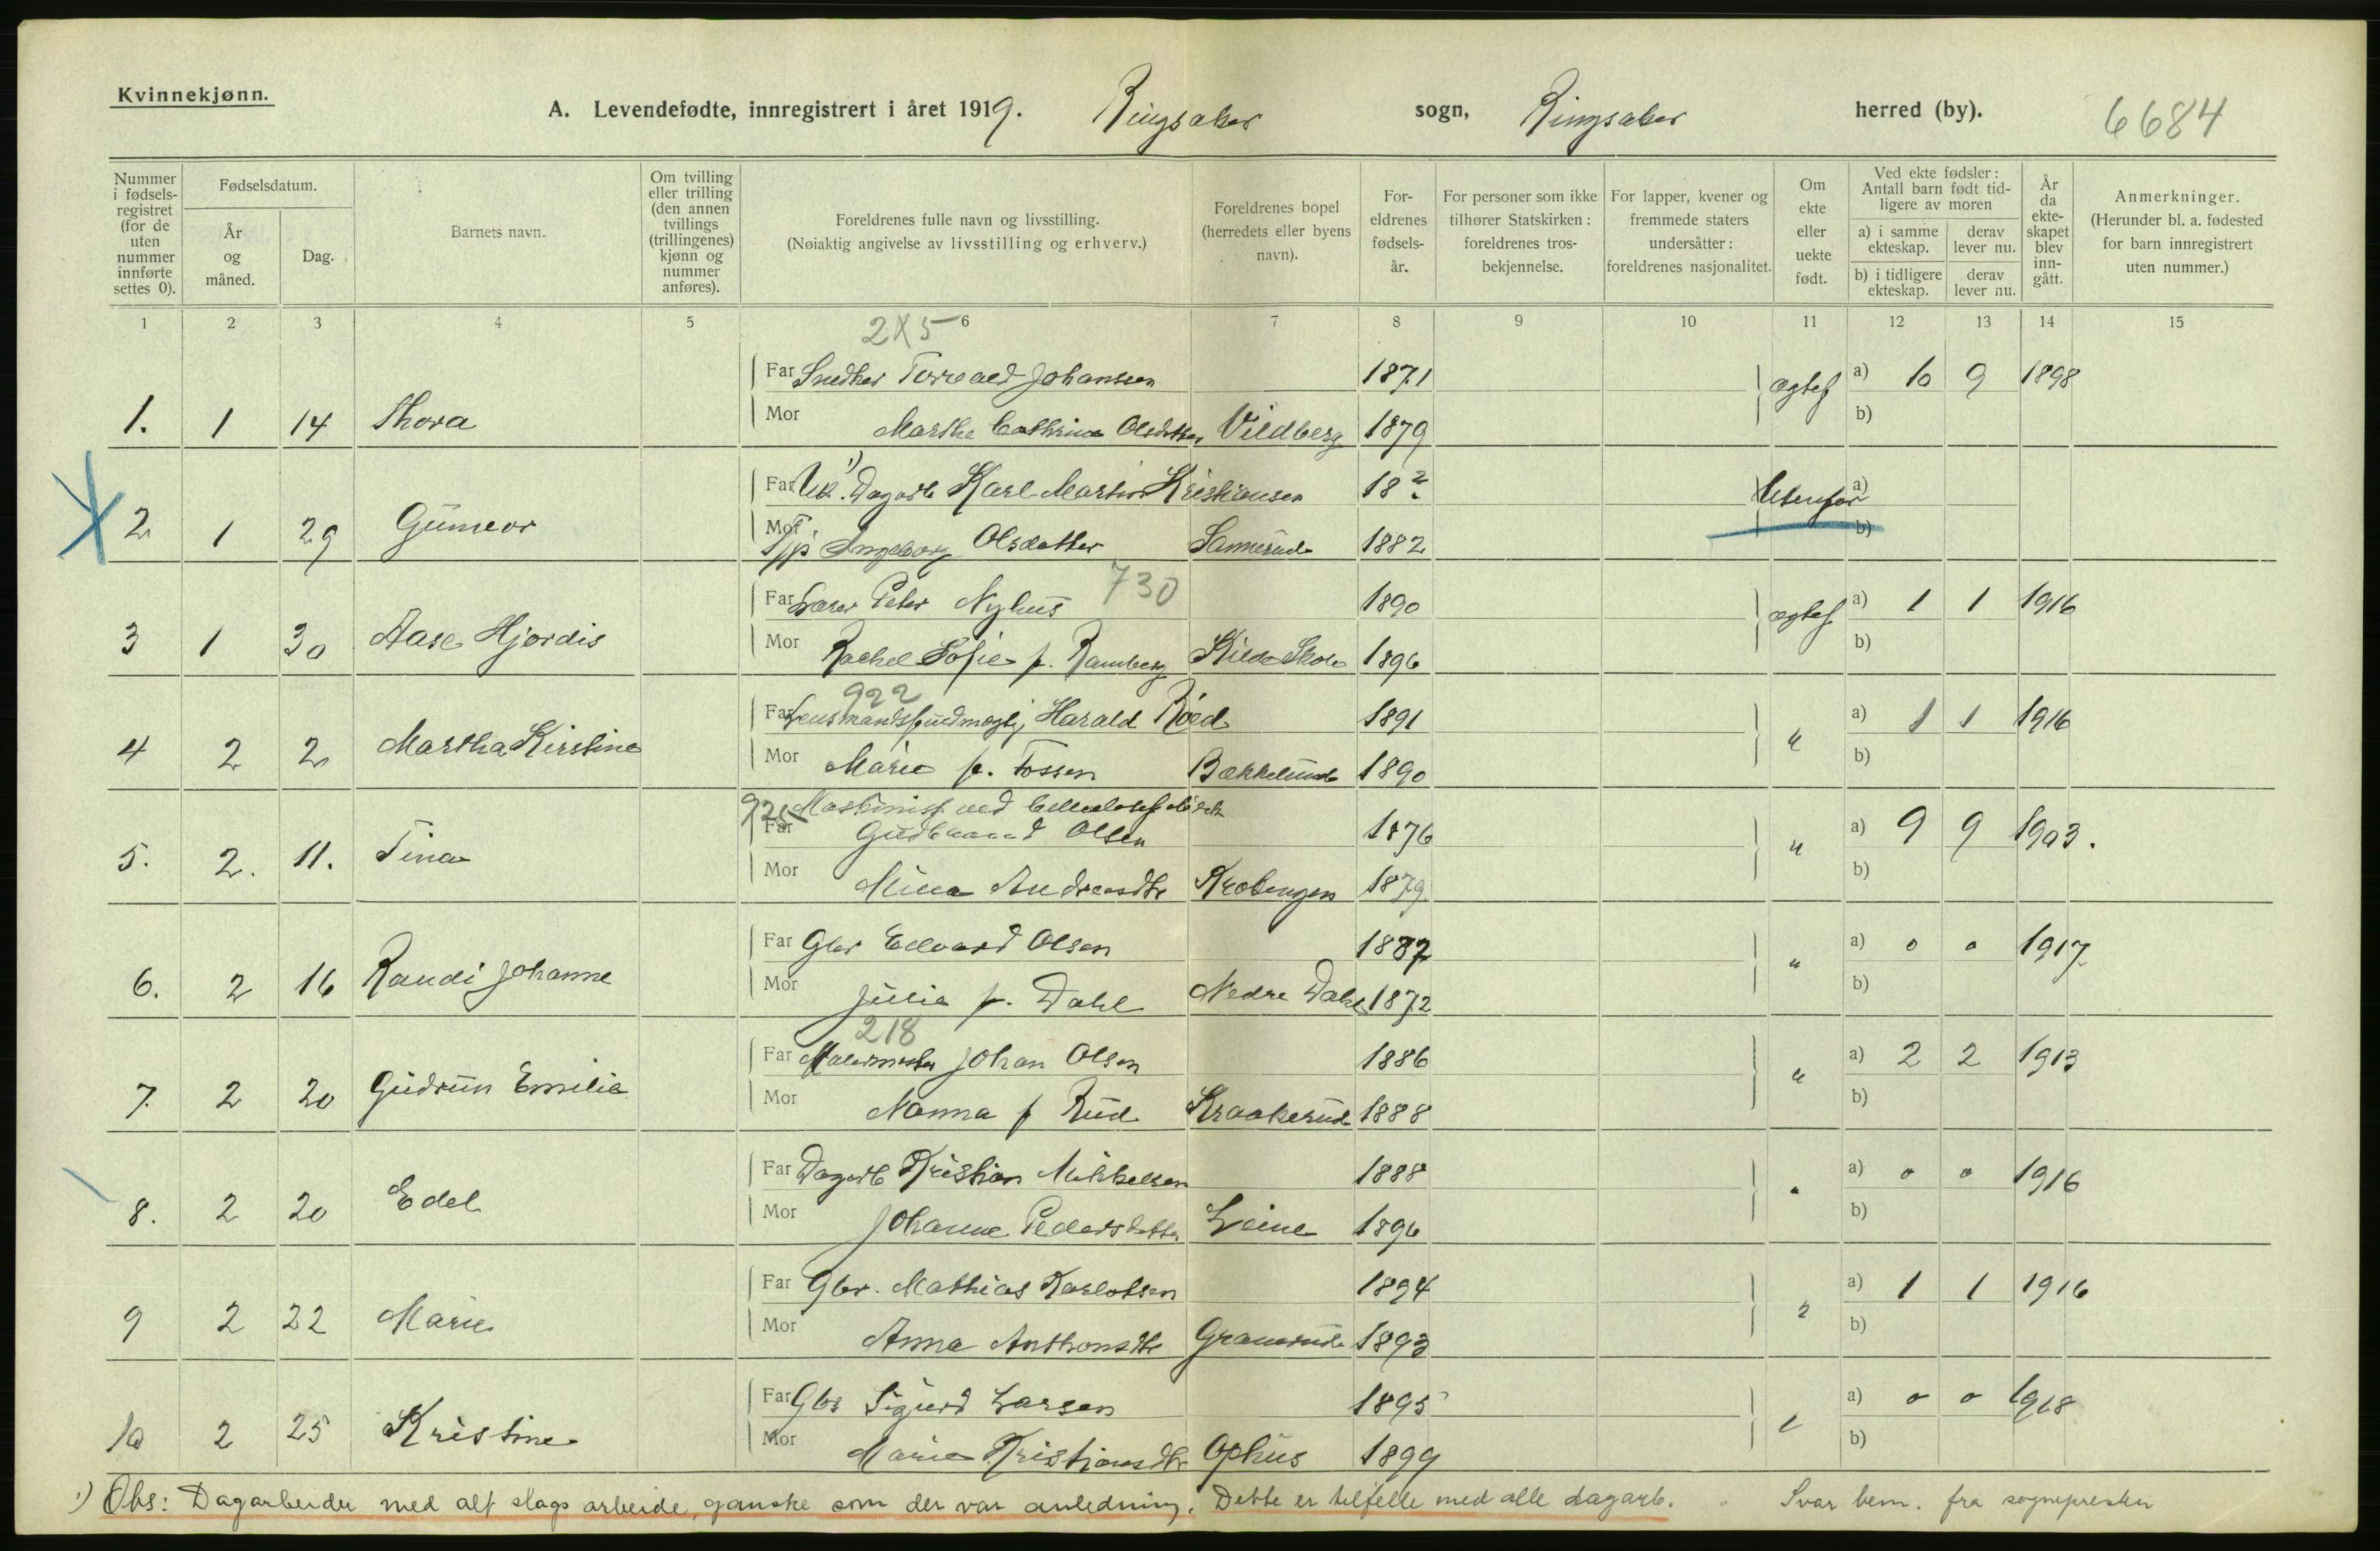 Kvinnekjønn.
A. Levendefødte, innregistrert i året 1919. Ringsaker sogn, Ringsaker herred (by). 6684
Nummer i fødselsregistret (for de uten nummer innførte settes 0).
Fødselsdatum.
År og måned.
Dag.
Barnets navn.
Om tvilling eller trilling (den annen tvillings (trillingenes) kjønn og nummer anføres).
Foreldrenes fulle navn og livsstilling.
(Nøiaktig angivelse av livsstilling og erhverv.)
Foreldrenes bopel (herredets eller byens navn).
Foreldrenes fødselsår.
For personer som ikke tilhører Statskirken: foreldrenes trosbekjennelse.
For lapper, kvener og fremmede staters undersåtter: foreldrenes nasjonalitet.
Om ekte eller uekte født.
Ved ekte fødsler: Antall barn født tidligere av moren
a) i samme ekteskap.
derav lever nu.
b) i tidligere ekteskap.
derav lever nu.
År da ekteskapet blev inngått.
Anmerkninger.
(Herunder bl. a. fødested for barn innregistrert uten nummer.)
1 2 3 4 5 6 7 8 9 10 11 12 13 14 15
2X5
Far Snedker Torvald Johanssen 1871 ægtef a) 10 9 1898
1. 1 14 Thora Mor Marthe Cathrine Olsdatter Vildberg 1879 b)
Far Uk. 1) Dagarb Karl Martin Kristiansen 18? Utenfor a)
2 1 29 Gunvor Mor Tjp Ingeborg Olsdatter Sannerud 1882 b)
730
Far Lærer Peter Nyhus 1890 ægtef a) 1 1 1916
3 1 30 Aase Hjørdis Mor Rachel Sofie f. Ramberg Kilde Skole 1896 b)
922
Far Lensmandsfuldmægtig Harald Röed 1891 " a) 1 1 1916
4 2 2 Martha Kirstine Mor Marie f. Fossen Bækkelund 1890 b)
Maskinist ved Cellulosefabrik
Far Gudbrand Olsen 1876 " a) 9 9 1903.
5. 2. 11. Tina Mor Mina Andreasdtr Krobengen 1879 b)
Far Gbr Edvard Olsen 1887 " a) 0 0 1917
6. 2 16 Randi Johanne Mor Julia f. Dahl Nedre Dahl 1872 b)
218
Far Malermester Johan Olsen 1886 " a) 2 2 1913
7. 2 20 Gudrun Emilie Mor Nanna f Rud Kraakerud 1888 b)
Far Dagarb Kristian Mikkelsen 1888 " a) 0 0 1916
8. 2 20 Edel Mor Johanne Pedersdatter Leine 1896 b)
Far Gbr. Mathias Karlotsen 1894 " a) 1 1 1916
9 2 22 Marie Mor Anna Anthonsdtr Granerud 1893 b)
Far Gbr Sigurd Larsen 1895 " a) 0 0 1918
10 2 25 Kristine Mor Marie Kristiansdtr Ophus 1899 b)
1) Obs: Dagarbeider med alt slags arbeide, ganske som der var anledning. Dette er tilfelle med alle dagarb. Svar bem. fra sognepresten